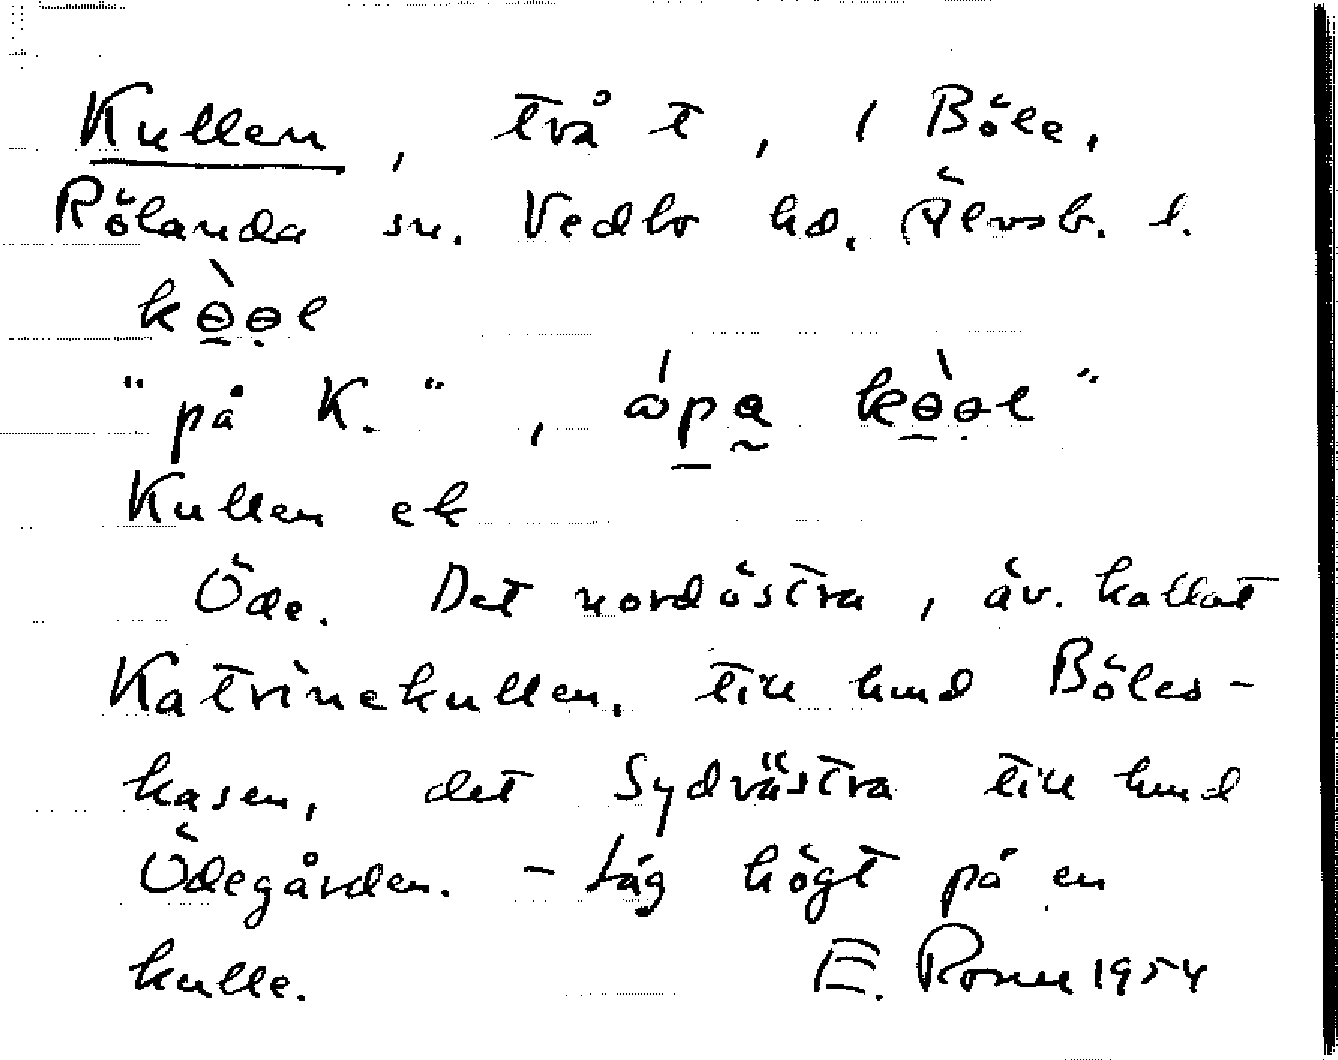 Kullen, två t, i Böle,
Rölanda sn. Vedbo hd. Älvsb. l.
kɵ̀ɵl
"på K.", ɷ́pa kɵ̀ɵl"
Kullen ek
Öde. Det nordöstra, äv. kallat
Katrinekullen, till hmd Böles-
kasen, det sydvästra till hmd
Ödegården. - Låg högt på en
kulle. E. 1954